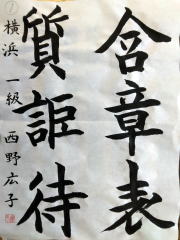 含章表
質詎待
①横浜 一級 西野広子